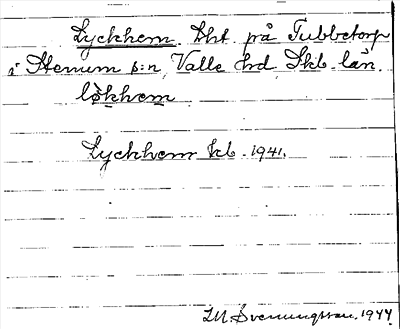 Lyckhem. Lht på Tubbetorp
i Stenum s:n, Valle hd Skb. län.
lø̀khem
Lyckhem kb. 1941.
I.M. Svenungsson. 1944